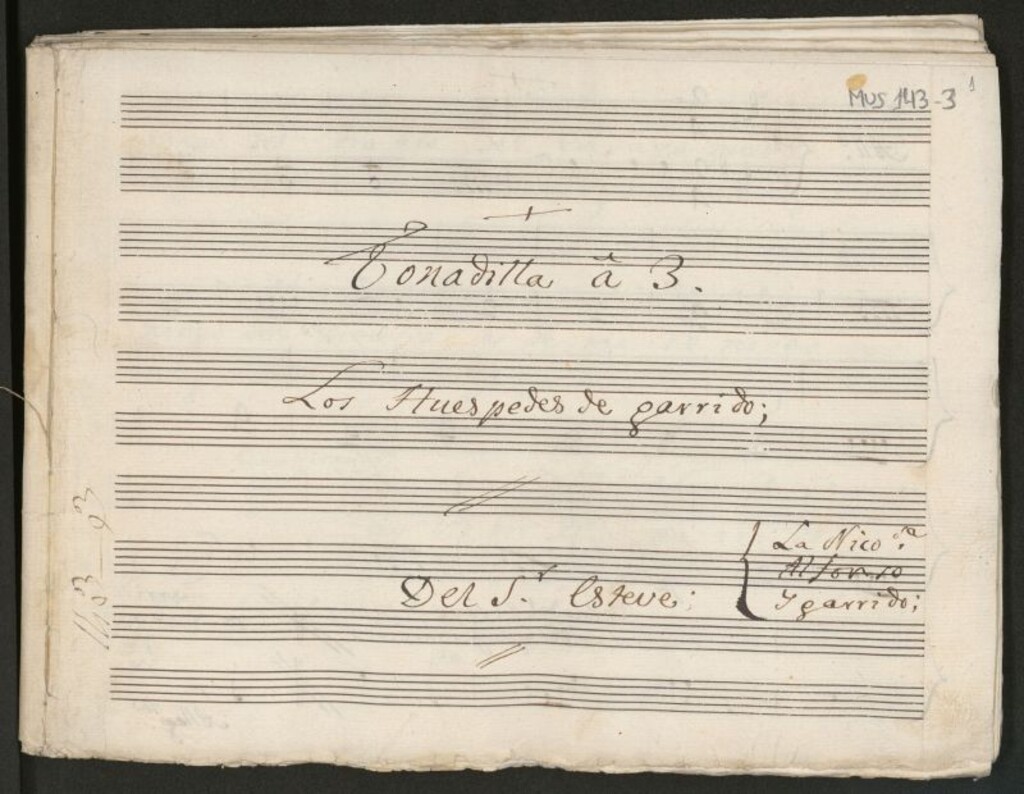 MUS 143-3
1
+
Tonadilla â 3.
Los Huespedes de garrido;
La Nico.ª
Alfonso
Y garrido;
Del S.r Esteve;